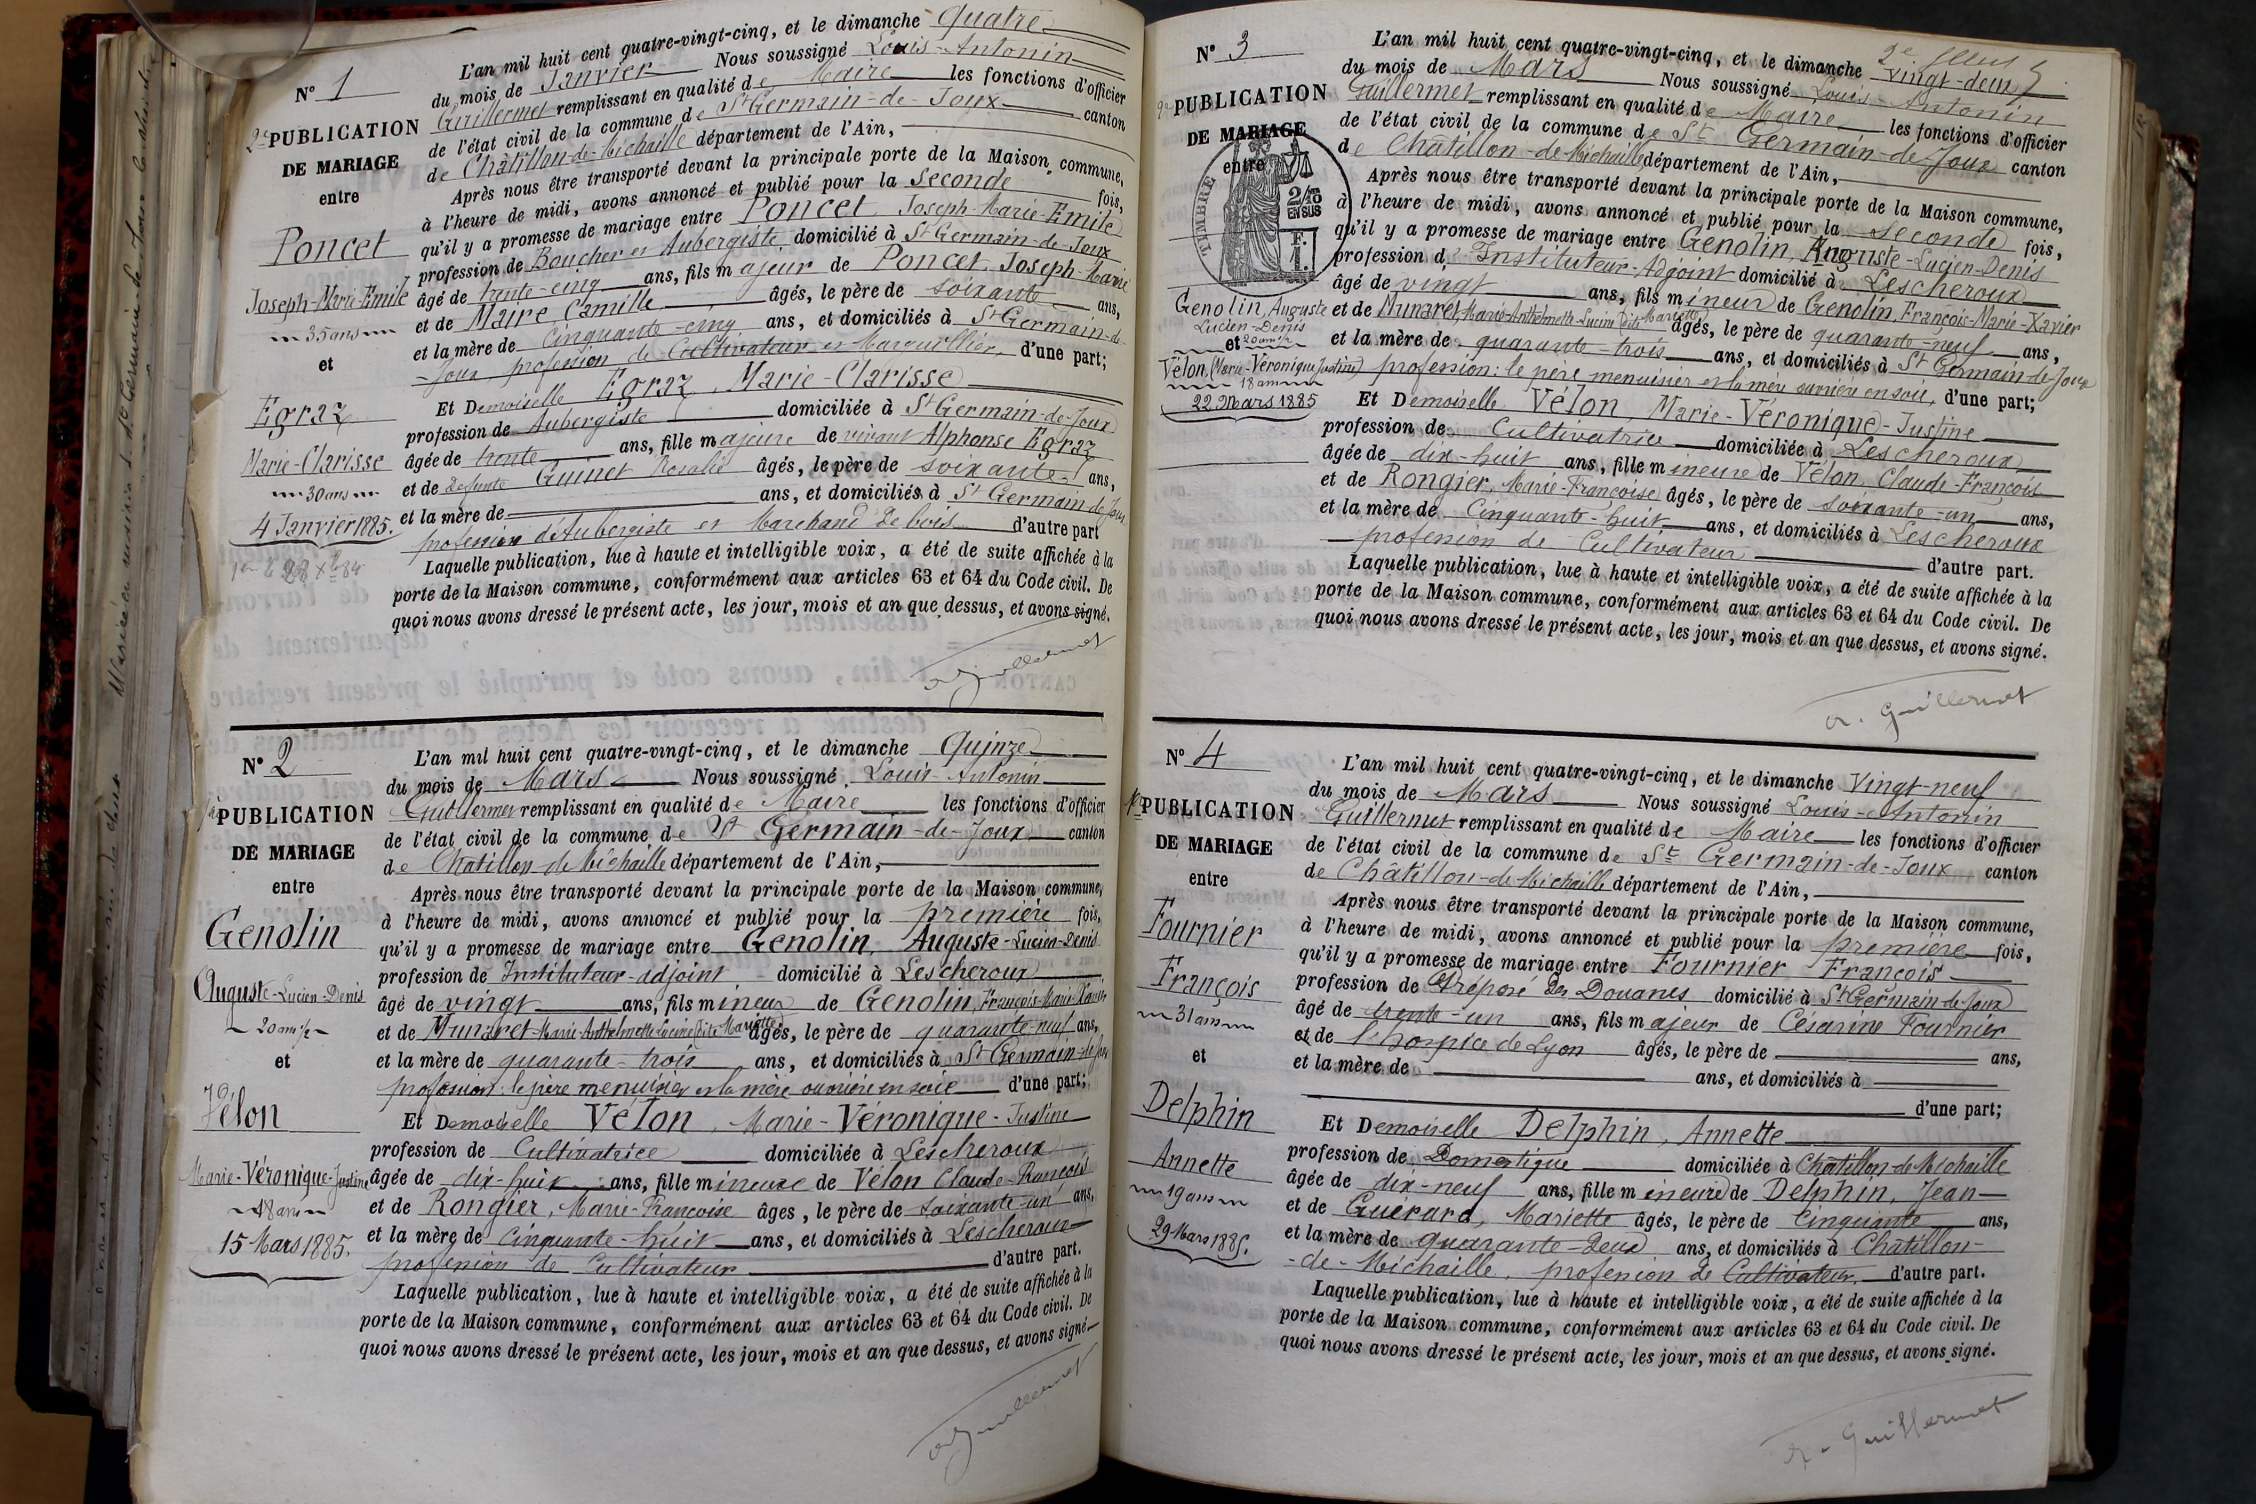 N° 1
2e PUBLICATION
DE MARIAGE
entre
Poncet
Joseph-Marie-Emile
35 ans
et
Egraz
Marie-Clarisse
30 ans
4 Janvier 1885.
L'an mil huit cent quatre-vingt-cinq, et le dimanche quatre
du mois de Janvier Nous soussigné Louis-Antonin
Guillermet remplissant en qualité de Maire les fonctions d'officier
de l'état civil de la commune de St Germain-de-Joux canton
de Châtillon-de-Michaille département de l'Ain,
Après nous être transporté devant la principale porte de la Maison commune,
à l'heure de midi, avons annoncé et publié pour la seconde fois,
qu'il y a promesse de mariage entre Poncet Joseph-Marie-Emile
profession de Boucher et Aubergiste domicilié à St Germain-de-Joux
âgé de trente-cinq ans, fils majeur de Poncet Joseph-Marie
et de Maire Camille âgés, le père de soixante ans,
et la mère de cinquante-cinq ans, et domiciliés à St Germain-de-
Joux profession de Cultivateur et Marguillier, d'une part;
Et Demoiselle Egraz, Marie-Clarisse
profession de Aubergiste domiciliée à St Germain-de-Joux
âgée de trente ans, fille majeure de vivant Alphonse Egraz
et de defunte Guinet Rosalie âgés, le père de soixante ans,
et la mère de ans, et domiciliés à St Germain de Joux
profession d'Aubergiste et Marchand de bois d'autre part
Laquelle publication, lue à haute et intelligible voix, a été de suite affichée à la
porte de la Maison commune, conformément aux articles 63 et 64 du Code civil. De
quoi nous avons dressé le présent acte, les jour, mois et an que dessus, et avons signé.
A. Guillermet
N° 2
1re PUBLICATION
DE MARIAGE
entre
Genolin
Auguste-Lucien-Denis
20 ans 1/2
et
Vélon
Marie-Véronique-Justine
18 ans
15 Mars 1885.
L'an mil huit cent quatre-vingt-cinq, et le dimanche Quinze
du mois de Mars Nous soussigné Louis-Antonin
Guillermet remplissant en qualité de Maire les fonctions d'officier
de l'état civil de la commune de St Germain-de-Joux canton
de Châtillon-de-Michaille département de l'Ain,
Après nous être transporté devant la principale porte de la Maison commune,
à l'heure de midi, avons annoncé et publié pour la première fois,
qu'il y a promesse de mariage entre Genolin, Auguste-Lucien-Denis
profession de Instituteur-adjoint domicilié à Lescheroux
âgé de vingt ans, fils mineur de Genolin, François-Marie-Xavier
et de Munaret Marie-Anthelmette-Lucine (dite Mariette) âgés, le père de quarante-neuf ans,
et la mère de quarante-trois ans, et domiciliés à St Germain-de-Joux
profession: le père menuisier et la mère ouvrière en soie d'une part;
Et Demoiselle Vélon, Marie-Véronique-Justine
profession de Cultivatrice domiciliée à Lescheroux
âgée de dix-huit ans, fille mineure de Vélon Claude-François
et de Rongier, Marie-Françoise âges, le père de soixante-un ans,
et la mère de cinquante-huit ans, et domiciliés à Lescheroux
profession de Cultivateur d'autre part.
Laquelle publication, lue à haute et intelligible voix, a été de suite affichée à la
porte de la Maison commune, conformément aux articles 63 et 64 du Code civil. De
quoi nous avons dressé le présent acte, les jour, mois et an que dessus, et avons signé
A. Guillermet
N° 3
PUBLICATION
DE MARIAGE
entre
TIMBRE
2/10
EN SUS
F.
1.
Genolin, Auguste
Lucien-Denis
et 20 ans 1/2
Vélon (Marie-Véronique Justine)
18 ans
22 Mars 1885
L'an mil huit cent quatre-vingt-cinq, et le dimanche vingt-deux
du mois de Mars Nous soussigné Louis-Antonin
Guillermet remplissant en qualité de Maire les fonctions d'officier
de l'état civil de la commune de St Germain-de-Joux canton
de Châtillon-de-Michaille département de l'Ain,
Après nous être transporté devant la principale porte de la Maison commune,
à l'heure de midi, avons annoncé et publié pour la seconde fois,
qu'il y a promesse de mariage entre Genolin, Auguste-Lucien-Denis
profession d' Instituteur-Adjoint domicilié à Lescheroux
âgé de vingt ans, fils mineur de Genolin, François-Marie-Xavier
et de Munaret, Marie-Anthelmette-Lucine (dite Mariette) âgés, le père de quarante-neuf ans,
et la mère de quarante-trois ans, et domiciliés à St Germain-de-Joux
profession: le père menuisier et la mère ouvrière en soie, d'une part;
Et Demoiselle Vélon, Marie-Véronique-Justine
profession de Cultivatrice domiciliée à Lescheroux
âgée de dix-huit ans, fille mineure de Vélon, Claude-François
et de Rongier, Marie-Françoise âgés, le père de soixante-un ans,
et la mère de Cinquante-huit ans, et domiciliés à Lescheroux
profession de Cultivateur d'autre part.
Laquelle publication, lue à haute et intelligible voix, a été de suite affichée à la
porte de la Maison commune, conformément aux articles 63 et 64 du Code civil. De
quoi nous avons dressé le présent acte, les jour, mois et an que dessus, et avons signé.
A. Guillermet
N° 4
1re PUBLICATION
DE MARIAGE
entre
Fournier
François
31 ans
et
Delphin
Annette
19 ans
29 Mars 1885.
L'an mil huit cent quatre-vingt-cinq, et le dimanche Vingt-neuf
du mois de Mars Nous soussigné Louis-Antonin
Guillermet remplissant en qualité de Maire les fonctions d'officier
de l'état civil de la commune de St Germain-de-Joux canton
de Châtillon-de-Michaille département de l'Ain,
Après nous être transporté devant la principale porte de la Maison commune,
à l'heure de midi, avons annoncé et publié pour la première fois,
qu'il y a promesse de mariage entre Fournier François
profession de Préposé des Douanes domicilié à St Germain-de-Joux
âgé de trente-un ans, fils majeur de Césarine Fournier
et de l'hospice de Lyon âgés, le père de ans,
et la mère de ans, et domiciliés à
d'une part;
Et Demoiselle Delphin, Annette
profession de Domestique domiciliée à Châtillon-de-Michaille
âgée de dix-neuf ans, fille mineure de Delphin, Jean
et de Guérard, Mariette âgés, le père de Cinquante ans,
et la mère de quarante-deux ans, et domiciliés à Châtillon-
-de-Michaille, profession de Cultivateur, d'autre part.
Laquelle publication, lue à haute et intelligible voix, a été de suite affichée à la
porte de la Maison commune, conformément aux articles 63 et 64 du Code civil. De
quoi nous avons dressé le présent acte, les jour, mois et an que dessus, et avons signé.
A. Guillermet